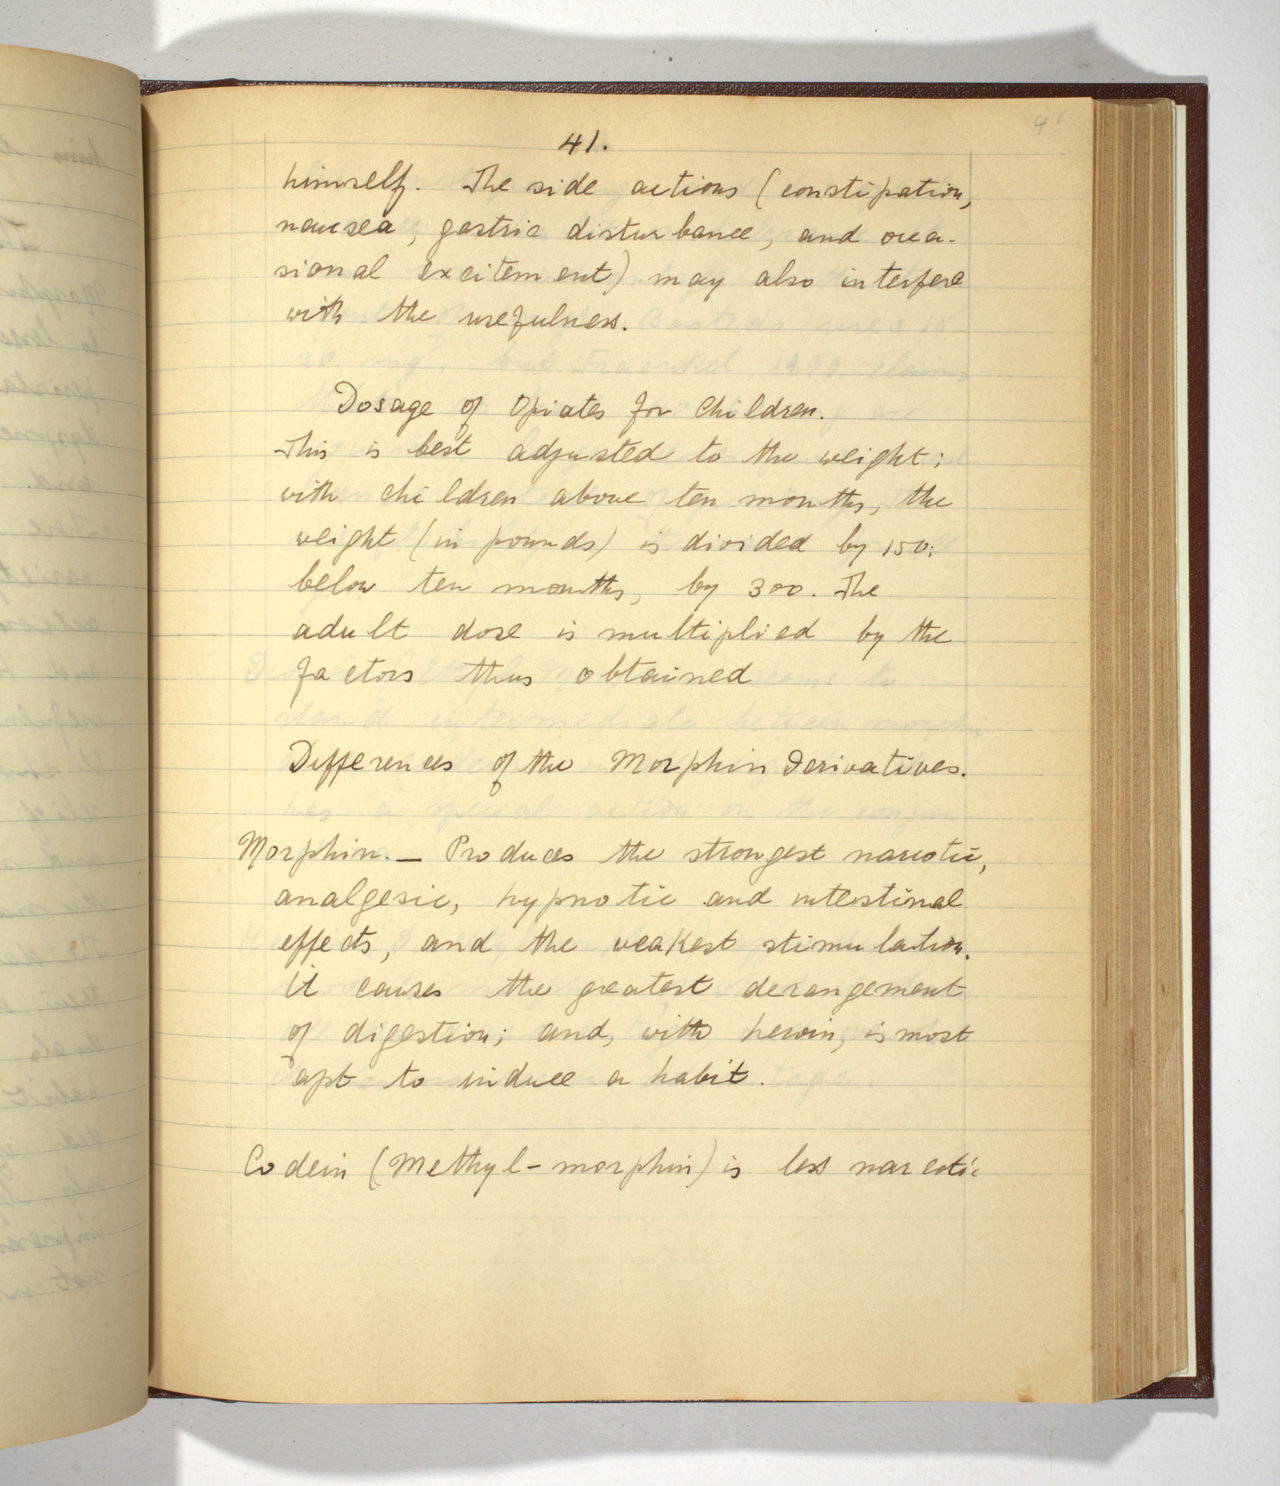 41.
41
himself. The side actions (constipation,
nausea, gastric disturbance, and occa-
sional excitement) may also interfere
with the usefulness.
Dosage of Opiates for Children.
This is best adjusted to the weight;
with children above ten months, the
weight (in pounds) is divided by 150;
below ten months, by 300. The
adult dose is multiplied by the
factors thus obtained
Differences of the Morphin Derivatives.
Morphin. — Produces the strongest narcotic,
analgesic, hypnotic and intestinal
effects, and the weakest stimulation.
it causes the greatest derangement
of digestion; and, with heroin, is most
apt to induce a habit.
Codein (Methyl-morphin) is less narcotic